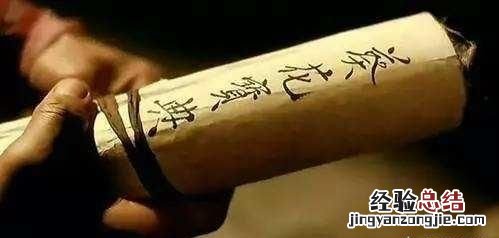 葵花寶典
经验总结
jingyanzongjie.com